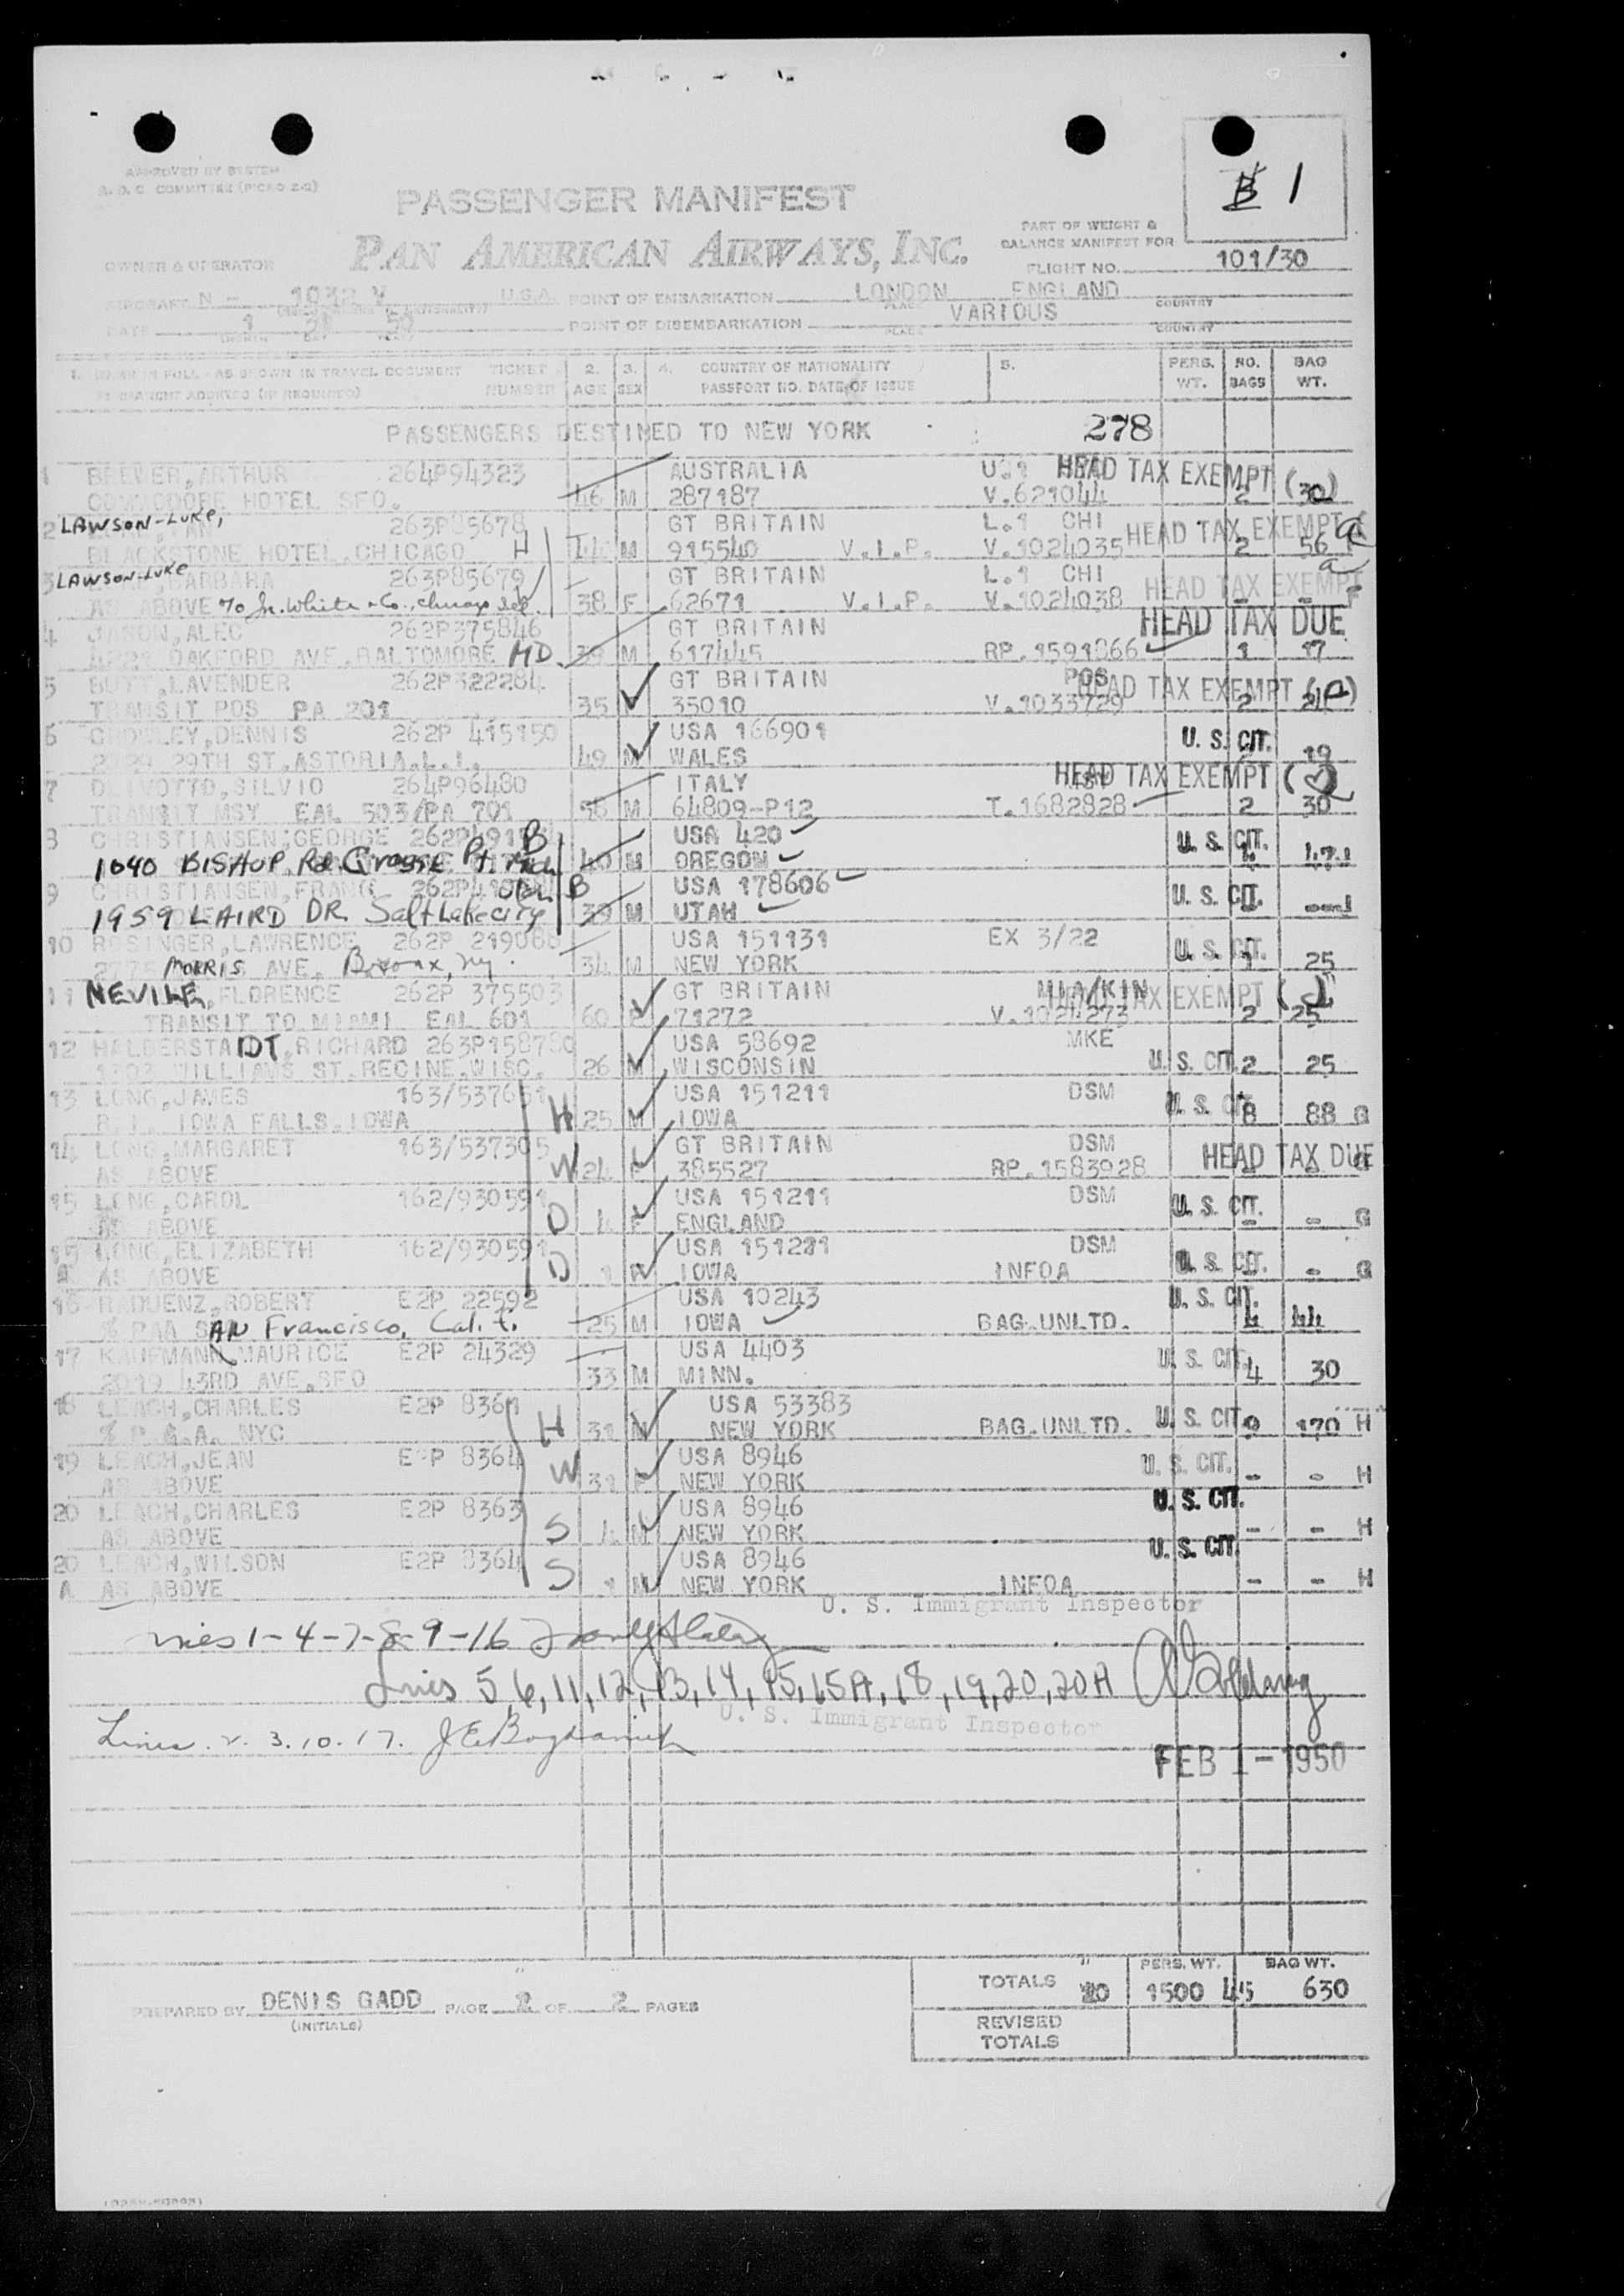 APPROVED BY SYSTEM
COMMITTEE
PASSENGER MANIFEST
B 1
PAN AMERICAN AIRWAYS, INC.
PART OF WEIGHT &
BALANCE MANIFEST FOR
OWNER & OPERATOR
FLIGHT NO. 101/30
AIRCRAFT N - U.S.A. POINT OF EMBARKATION LONDON ENGLAND
PLACE COUNTRY
DATE 1 50 POINT OF DISEMBARKATION VARIOUS
PLACE COUNTRY
1. NAME IN FULL - AS SHOWN IN TRAVEL DOCUMENT TICKET 2. 3. 4. COUNTRY OF NATIONALITY 5. PERS. NO. BAG
PERMANENT ADDRESS (IF REQUIRED) NUMBER AGE SEX PASSPORT NO. DATE OF ISSUE WT. BAGS WT.
PASSENGERS DESTINED TO NEW YORK 278
1 BREWER, ARTHUR 264P94323 AUSTRALIA HEAD TAX EXEMPT
COMMODORE HOTEL SFO. 46 M 287187 V.621044 2 (30)
2 LAWSON-LUKE, 263P85678 GT BRITAIN L.1 CHI HEAD TAX EXEMPT
BLACKSTONE HOTEL, CHICAGO H M 915540 V.I.P. V.1024035 2 56
3 LAWSON-LUKE BARBARA 263P85679 GT BRITAIN L.1 CHI HEAD TAX EXEMPT
AS ABOVE White & Co., 38 F 62671 V.I.P. V.1024038
4 JASON, ALEC 262P375846 GT BRITAIN HEAD TAX DUE
OAKFORD AVE, BALTOMORE MD. M 617445 RP.1591866 1 17
5 BUTT, LAVENDER 262P322284 GT BRITAIN POS HEAD TAX EXEMPT
TRANSIT POS PA 201 35 35010 V.1033729 2
6 CROWLEY, DENNIS 262P 415150 USA 166901 U. S. CIT.
29TH ST, ASTORIA, L.I. 49 M WALES 19
7 DEIVOTTO, SILVIO 264P96480 ITALY HEAD TAX EXEMPT
TRANSIT MSY EAL 503/PA 701 56 M 64809-P12 T.1682828 2 30
8 CHRISTIANSEN, GEORGE B USA 420 U. S. CIT.
1040 BISHOP Rd Grosse Pt. Mich 40 M OREGON
9 CHRISTIANSEN, FRANK B USA 178606 U. S. CIT.
1959 LAIRD DR. Salt Lake City 39 M UTAH
10 ROSINGER, LAWRENCE 262P 219088 USA 151131 EX 3/22 U. S. CIT.
2775 MORRIS AVE. Bronx, ny. 34 M NEW YORK 1 25
11 NEVILE, FLORENCE 262P 375503 GT BRITAIN MIA/KIN TAX EXEMPT
TRANSIT TO MIAMI EAL 601 60 F 71272 V.1024273 2 25
12 HALBERSTADT, RICHARD 263P158780 USA 58692 MKE
WILLIAMS ST. RECINE, WISC. 26 M WISCONSIN U. S. CIT. 2 25
13 LONG, JAMES 163/537651 USA 151211 DSM U. S. CIT.
R.1. IOWA FALLS, IOWA H 25 M IOWA 8 88 G
14 LONG, MARGARET 163/537305 GT BRITAIN DSM HEAD TAX DUE
AS ABOVE W 24 F 385527 RP.1583928 G
15 LONG, CAROL 162/930591 USA 151211 DSM U. S. CIT.
AS ABOVE D 4 F ENGLAND - - G
15 LONG, ELIZABETH 162/930591 USA 151211 DSM U. S. CIT.
A AS ABOVE D 1 F IOWA INFOA - G
16 RADUENZ, ROBERT E2P 22592 USA 10243 U. S. CIT.
% PAA SAN Francisco, Calif. 25 M IOWA BAG. UNLTD. 4 44
17 KAUFMANN, MAURICE E2P 24329 USA 4403 U. S. CIT.
2019 43RD AVE, SFO 33 M MINN. 4 30
18 LEACH, CHARLES E2P 8361 USA 53383 U. S. CIT.
% P.A.A. NYC H 31 M NEW YORK BAG. UNLTD. 9 170 H
19 LEACH, JEAN E2P 8364 USA 8946 U. S. CIT.
AS ABOVE W 31 F NEW YORK - - H
20 LEACH, CHARLES E2P 8363 USA 8946 U. S. CIT.
AS ABOVE S 4 M NEW YORK - - H
20 LEACH, WILSON E2P 8364 USA 8946 U. S. CIT.
A AS ABOVE S 1 M NEW YORK INFOA - - H
U. S. Immigrant Inspector
Lines 1-4-7-8-9-16
Lines 5,6,11,12,13,14,15,15A,18,19,20,20A
U. S. Immigrant Inspector
Lines. 2. 3. 10. 17.
FEB 1 - 1950
PERS. WT. BAG WT.
TOTALS 20 1500 45 630
PREPARED BY DENIS GADD PAGE 2 OF 2 PAGES
(INITIALS)
REVISED
TOTALS